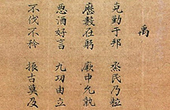 禹
克勤于邦 烝民乃粒
歷數在躬 厥中允執
惡酒好言 九功由立
不伐不矜 振古莫及